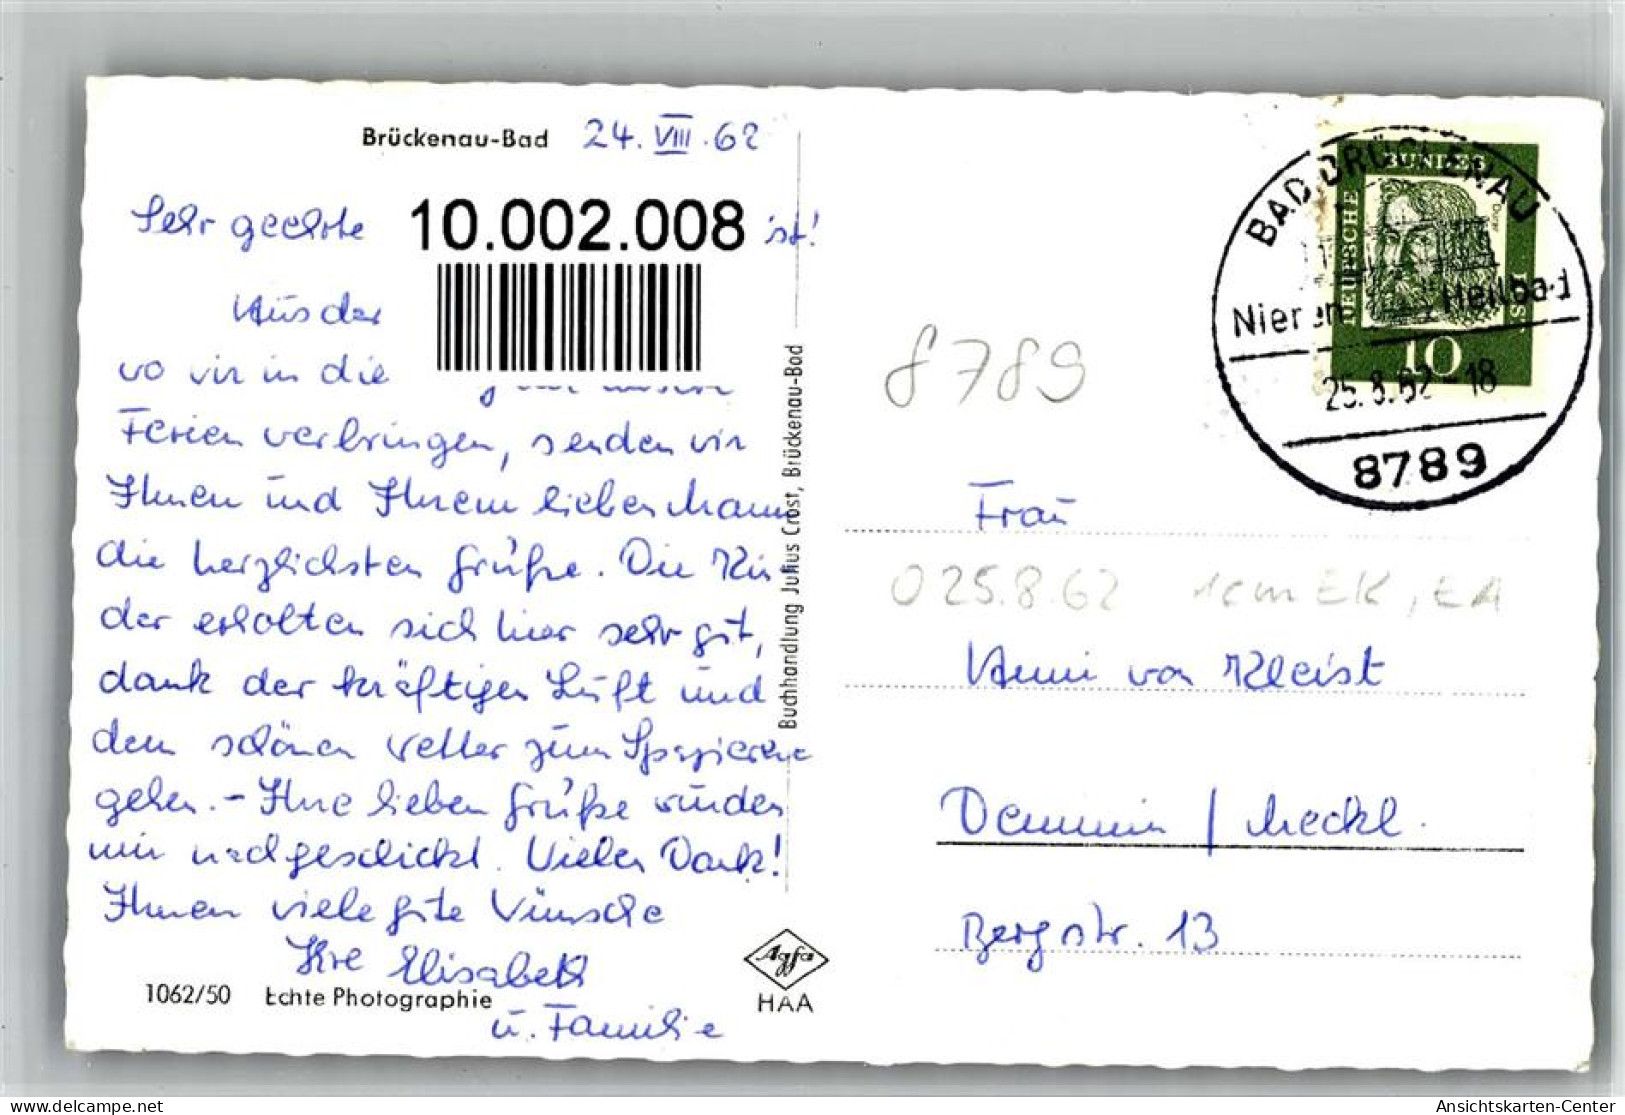 Brückenau-Bad 24. VIII. 62
Sehr geehrte
10.002.008
ist!
Aus der
wo wir in die
Ferien verbringen, senden wir
Ihnen und Ihrem lieben Mann
die herzlichsten Grüße. Die Kin
der erholten sich hier sehr gut,
dank der kräftigen Luft und
dem schönen Wetter zum Spazieren
gehen. - Ihre lieben Grüße wurden
mir nachgeschickt. Vielen Dank!
Ihnen viele gute Wünsche
Ihre Elisabeth
u. Familie
1062/50 Echte Photographie
Buchhandlung Julius Crost, Brückenau-Bad
Agfa
HAA
BAD BRÜCKENAU
Nieren Heilbad
25.8.62-18
8789
DEUTSCHE
BUNDES
POST
10
8789
Frau
O 25.8.62 1cm EK, EA
Anni von Kleist
Demmin / Meckl.
Bergstr. 13
Ansichtskarten-Center